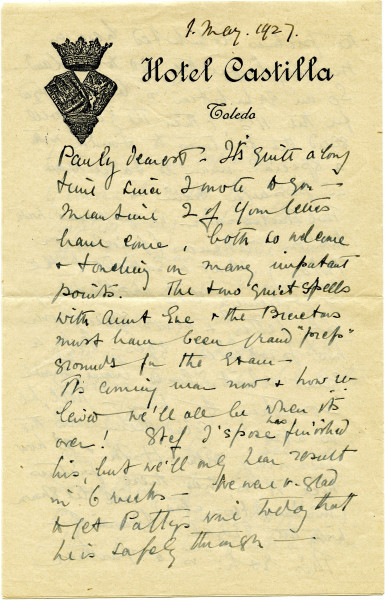 1. May. 1927.
Hotel Castilla
Toledo
Pauly dearest - It's quite a long
time since I wrote to you -
Meantime 2 of your letters
have come, both so welcome
& touching on many important
points. The two quiet spells
with Aunt Eve & the
must have been grand "prep"
grounds for the Exam -
Its coming near now & how re-
lieved we'll all be when it's
over! Stef I s'pose has finished
his, but we'll only hear result
in 6 weeks - We were v. glad
to get Patty's wire today that
he is safely through -